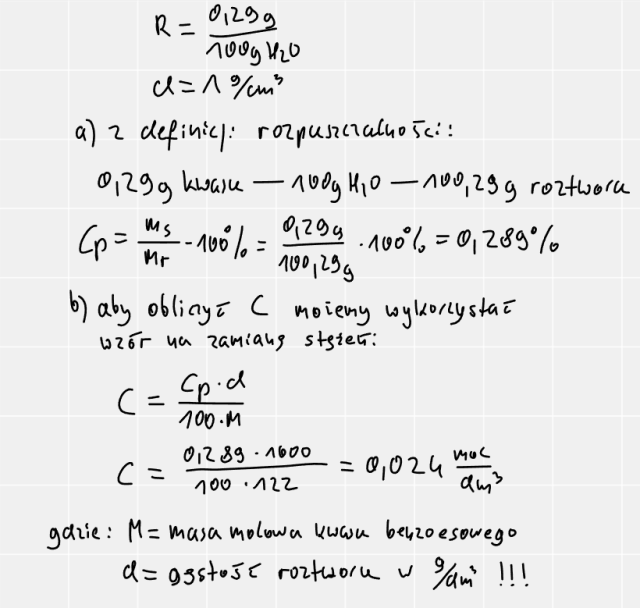 R = 0,29g / 100g H₂O
d = 1 g/cm³
a) z definicji rozpuszczalności:
0,29g kwasu — 100g H₂O — 100,29g roztworu
Cp = ms/mr · 100% = 0,29g/100,29g · 100% = 0,289%
b) aby obliczyć C możemy wykorzystać
wzór na zamianę stężeń:
C = Cp · d / 100 · M
C = 0,289 · 1000 / 100 · 122 = 0,024 mol/dm³
gdzie: M = masa molowa kwasu benzoesowego
d = gęstość roztworu w g/dm³ !!!